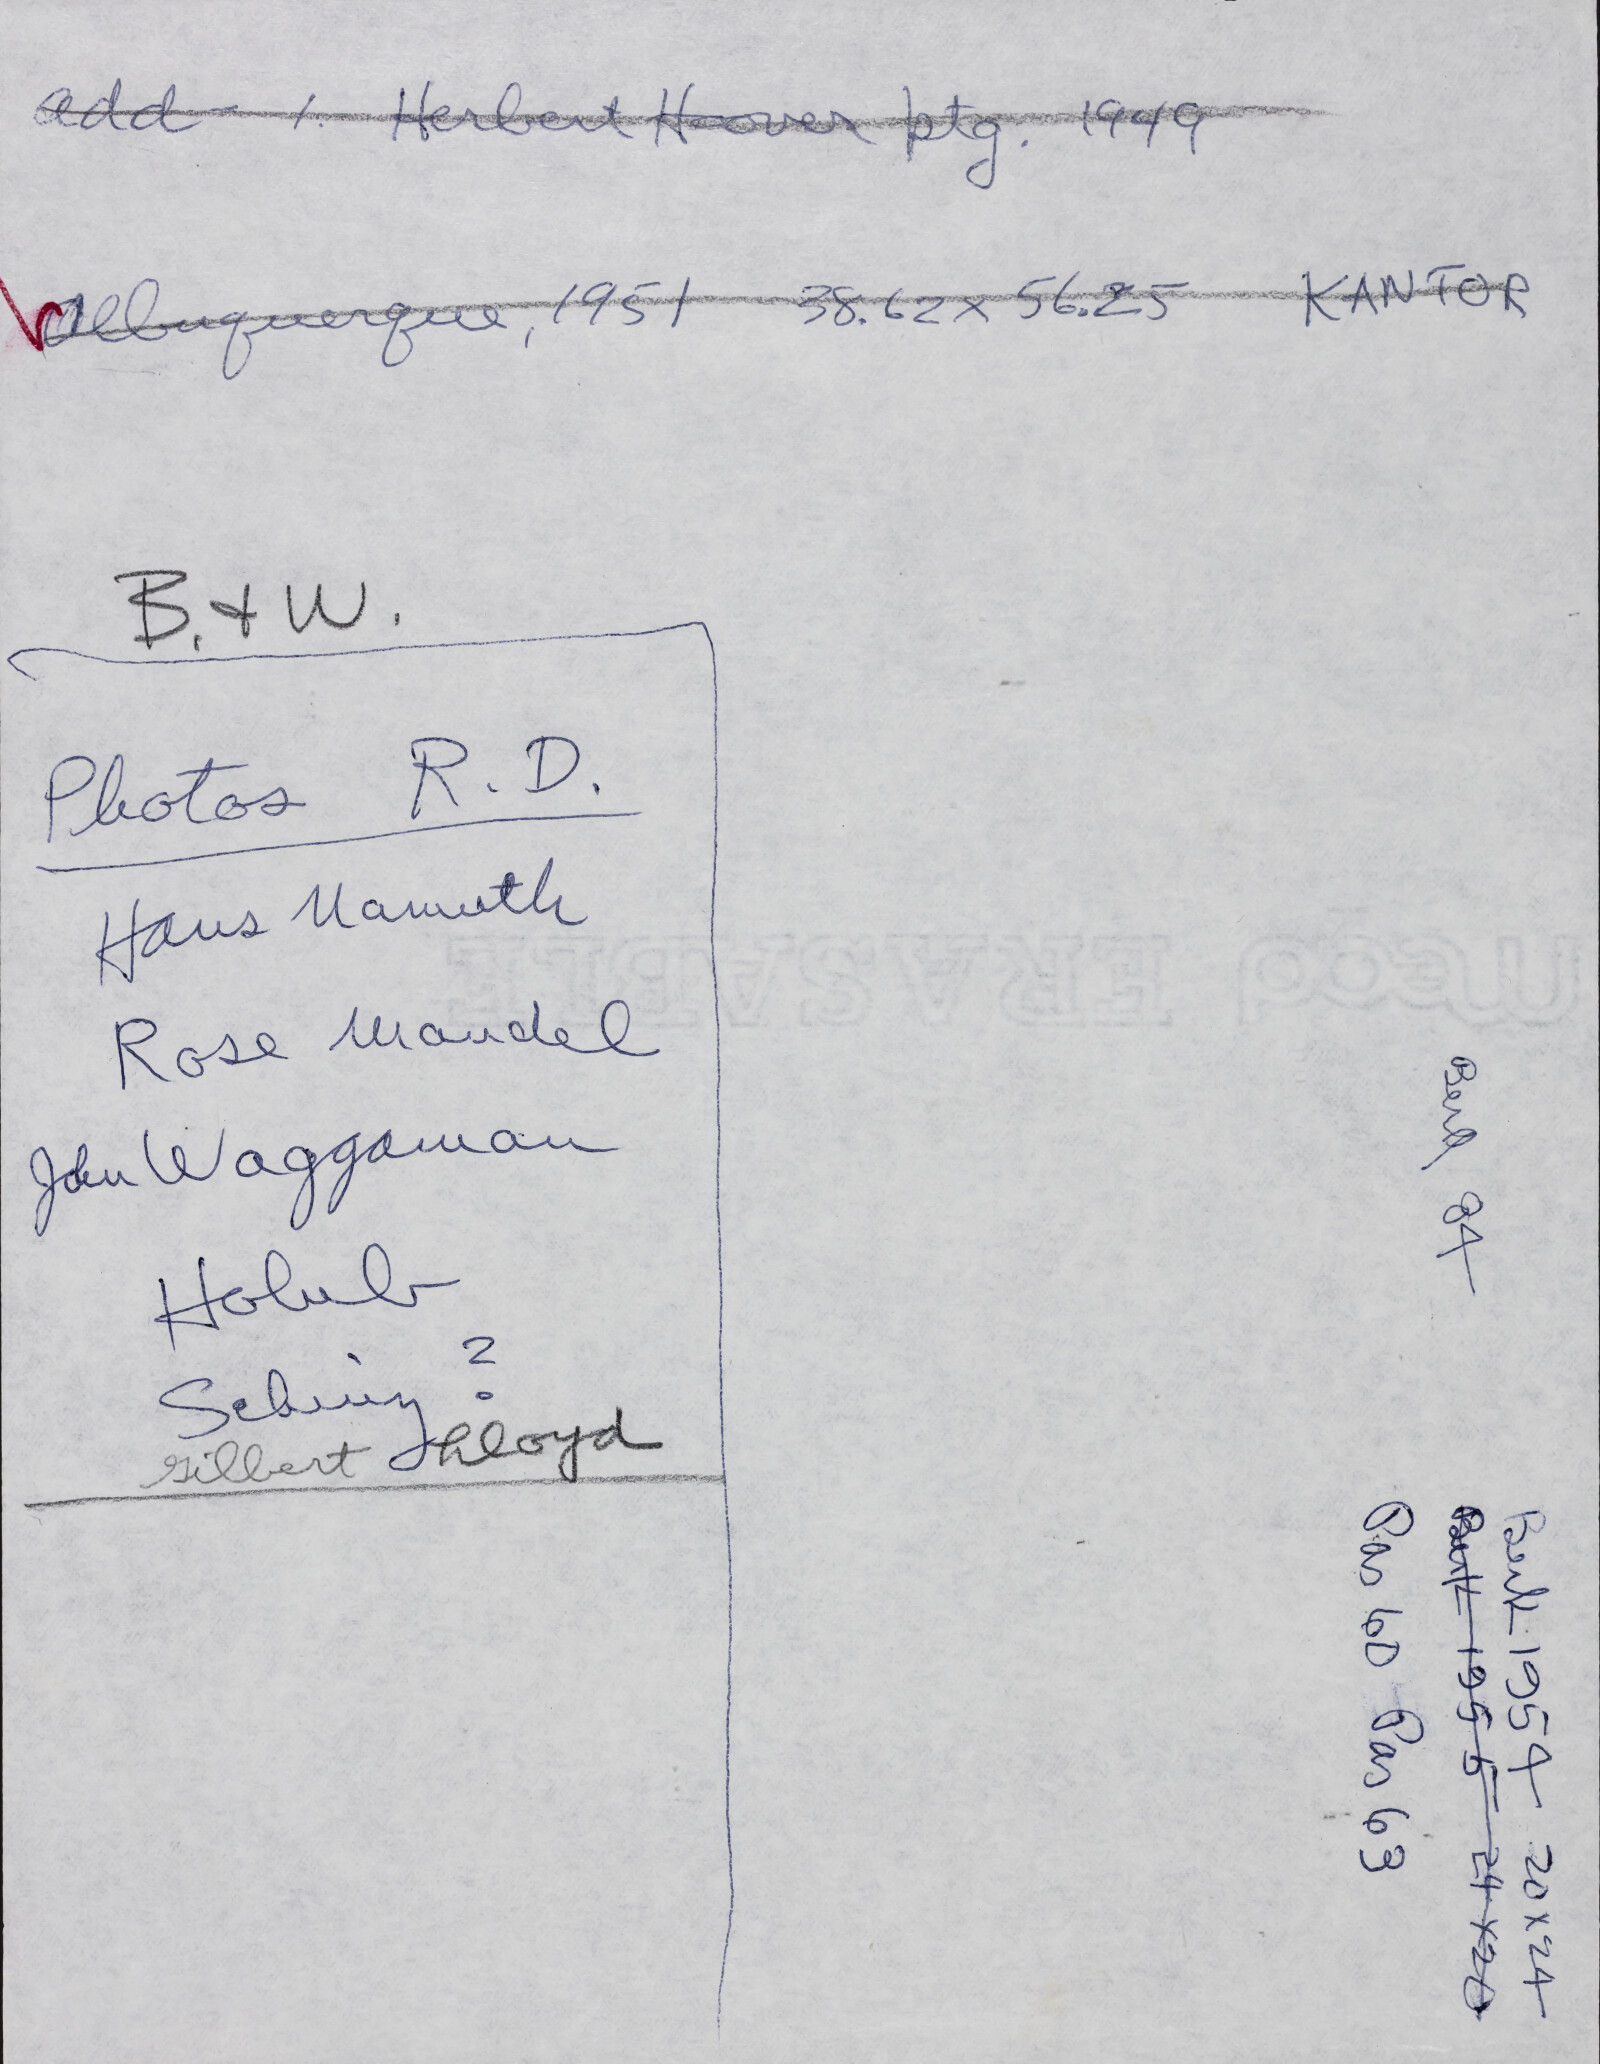 add - 1. Herbert Hoover ptg. 1949
Albuquerque, 1951 38.62 x 56.25 KANTOR
B. + W.
Photos R.D.
Hans Namuth
Rose Mandel
John Waggaman
Holub
?
Gilbert Lloyd
mead ERASABLE
Berk 54
Berk 1954 20 x 24
Berk 1955 24 x 20
Pas 60 Pas 63